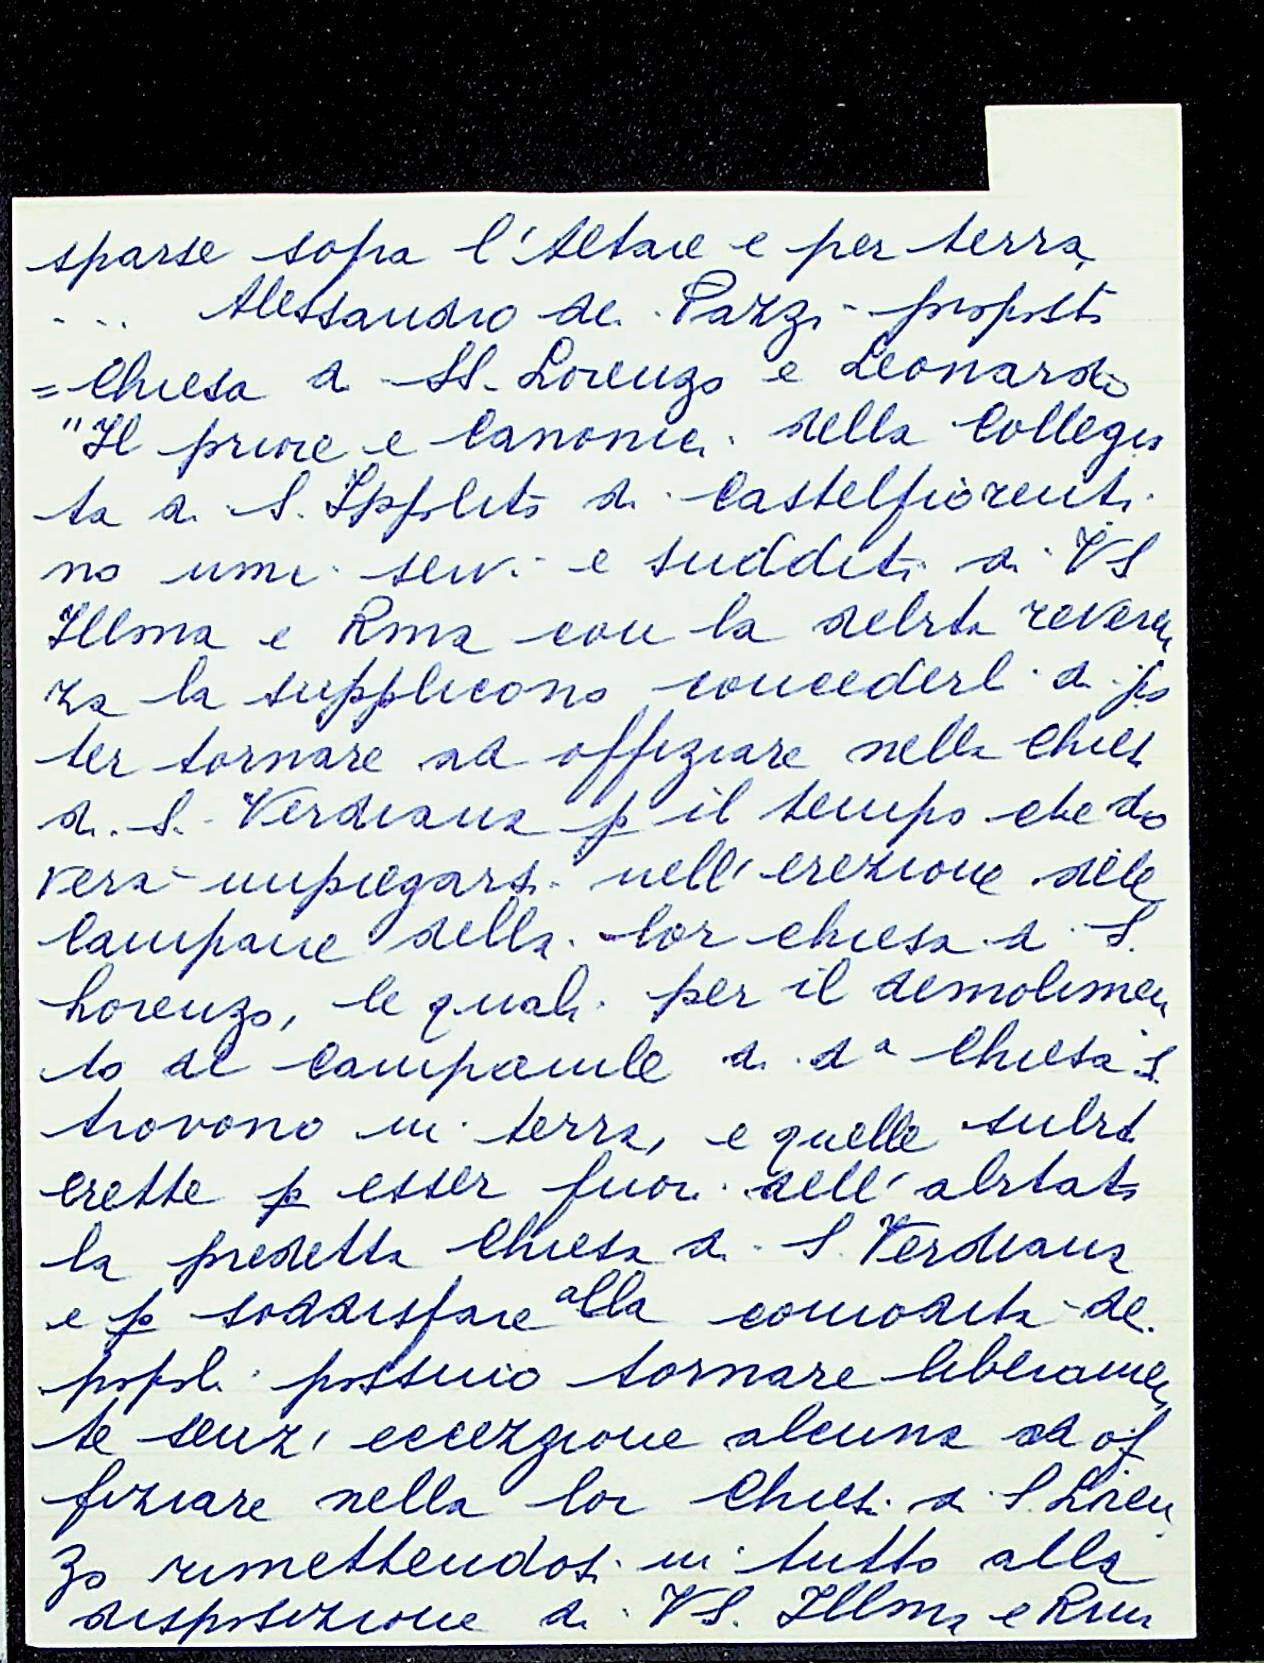 sparse sopra l'Altare e per terra,
... Alessandro de Pazzi - proposto
= Chiesa di SS. Lorenzo e Leonardo
"Il priore e Canonici della Collegia
ta di S. Ippolito di Castelfiorenti
no umi. serv. e sudditi di VS
Illma e Rma con la debita reveren
za la supplicono concederli di po
ter tornare ad offiziare nella Chiesa
di S. Verdiana p il tempo che do
verà impiegarsi nell'erezione delle
Campane della lor chiesa di S.
Lorenzo, le quali per il demolimen
to del Campanile di da Chiesa si
trovono in terra, e quelle subito
erette p esser fuori dell'abitato
la predetta Chiesa di S. Verdiana
e p soddisfare alla comodità de
popoli possino tornare liberamen
te senz'eccezzione alcuna ad of
fiziare nella lor Chiesa di S. Loren
zo rimettendosi in tutto alla
disposizione di VS. Illma e Rma